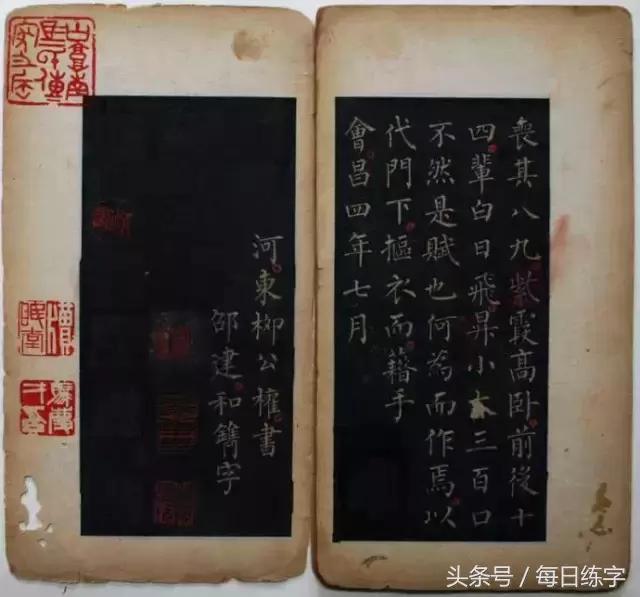 喪其八九紫霞高卧前後十
四輩白日飛昇小大三百口
不然是賦也何為而作焉以
代門下摳衣而籍手
會昌四年七月
河東柳公權書
邵建和鐫字
头条号 / 每日练字